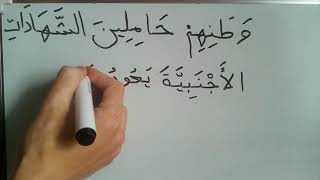 وَطَنِهِمْ حَامِلِينَ الشَّهَادَاتِ
الأَجْنَبِيَّةَ يَعُو